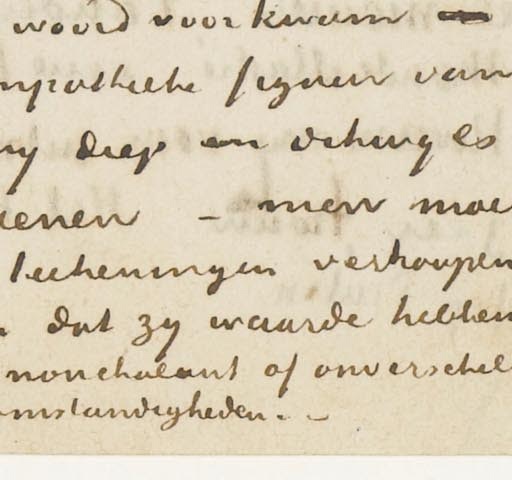 woord voorkwam
figuren van
zy diep en
dienen – men moet
teekeningen verkoopen
dat zy waarde hebben
nonchalant of onverschel
omstandigheden. –